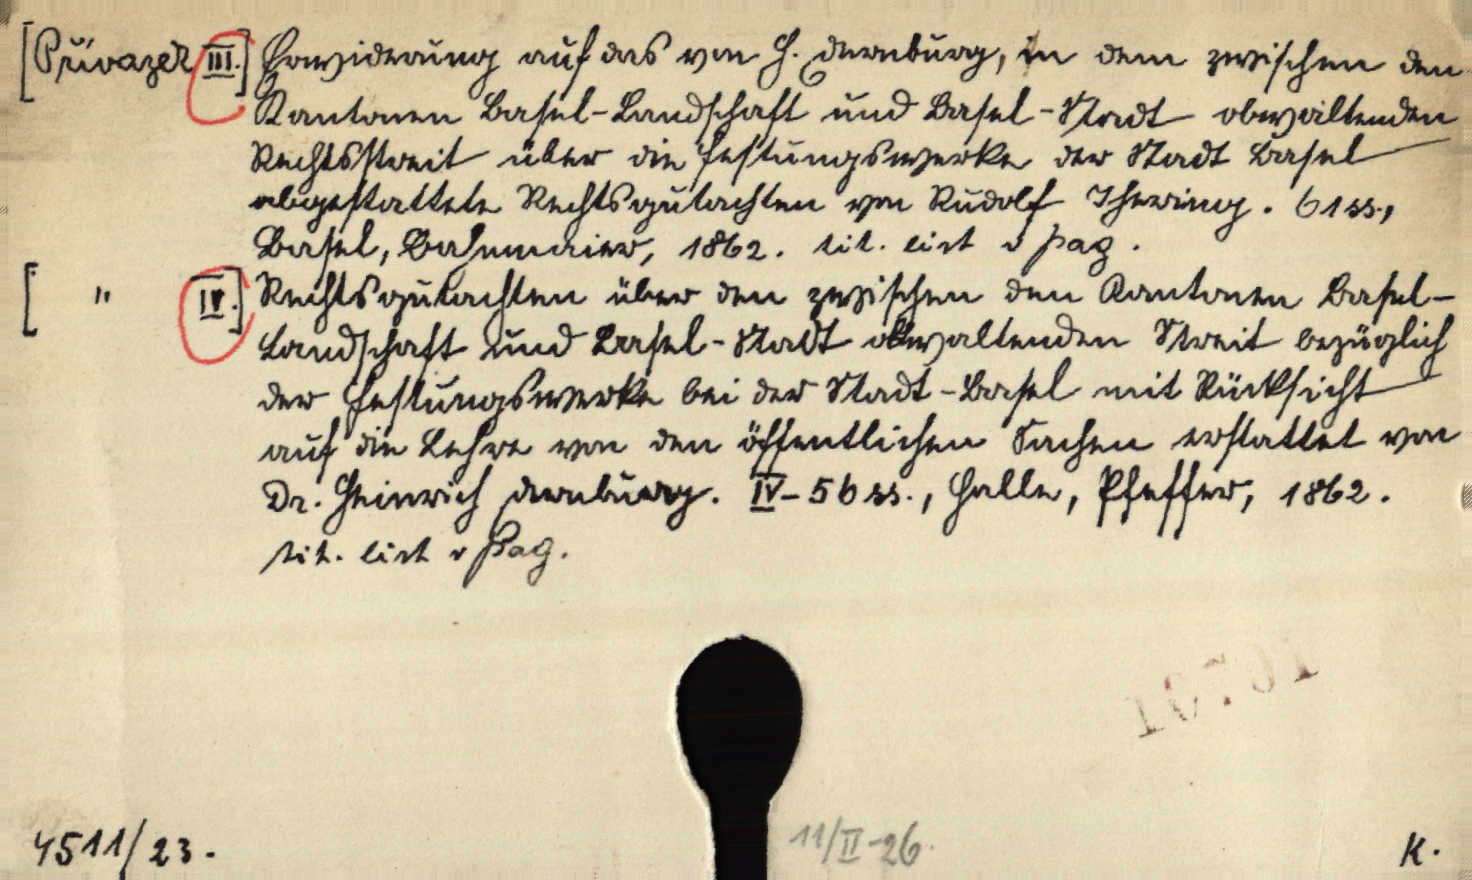 [Přívazek III.] Erwiderung auf das von H. Dernburg, in dem zwischen den
Kantonen Basel-Landschaft und Basel-Stadt obwaltenden
Rechtsstreit über die Festungswerke der Stadt Basel
abgestattete Rechtsgutachten von Rudolf Ihering. 61 ss.,
Basel, Bahnmaier, 1862. tit. list v pag.
[ " IV.] Rechtsgutachten über den zwischen den Kantonen Basel-
Landschaft und Basel-Stadt obwaltenden Streit bezüglich
der Festungswerke bei der Stadt-Basel mit Rücksicht
auf die Lehre von den öffentlichen Sachen erstattet von
Dr. Heinrich Dernburg. IV-56 ss., Halle, Pfeffer, 1862.
tit. list v pag.
10701
4511/23.
11/II-26.
K.